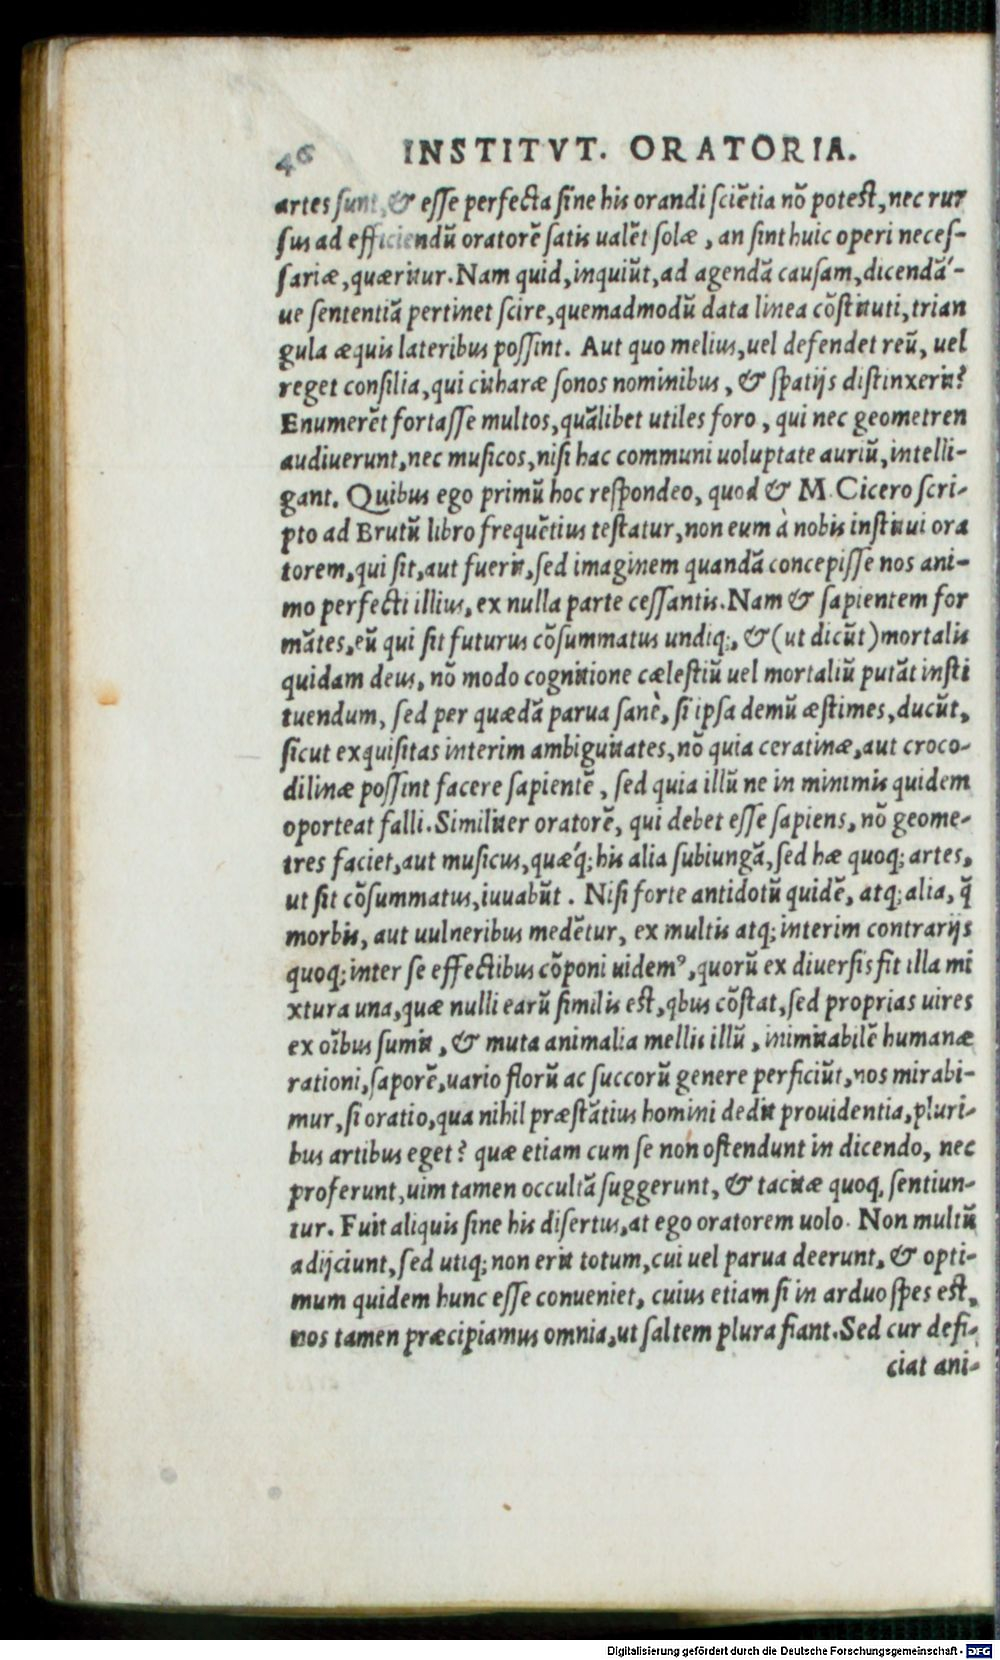 46 INSTITVT. ORATORIA.
artes sunt, & esse perfecta sine his orandi sciẽtia nõ potest, nec rur
sus ad efficiendũ oratorẽ satis ualẽt solæ, an sint huic operi neces-
sariæ, quæritur. Nam quid, inquiũt, ad agendã causam, dicendã´-
ue sententiã pertinet scire, quemadmodũ data linea cõstituti, trian
gula æquis lateribus possint. Aut quo melius, uel defendet reũ, uel
reget consilia, qui citharæ sonos nominibus, & spatijs distinxerit?
Enumerẽt fortasse multos, quãlibet utiles foro, qui nec geometren
audiuerunt, nec musicos, nisi hac communi uoluptate auriũ, intelli-
gant. Quibus ego primũ hoc respondeo, quod & M. Cicero scri-
pto ad Brutũ libro frequẽtius testatur, non eum à nobis institui ora
torem, qui sit, aut fuerit, sed imaginem quandã concepisse nos ani-
mo perfecti illius, ex nulla parte cessantis. Nam & sapientem for
mãtes, eũ qui sit futurus cõsummatus undiq;, & (ut dicũt) mortalis
quidam deus, nõ modo cognitione cælestiũ uel mortaliũ putãt insti
tuendum, sed per quædã parua sanè, si ipsa demũ æstimes, ducũt,
sicut exquisitas interim ambiguitates, nõ quia ceratinæ, aut croco-
dilinæ possint facere sapientẽ, sed quia illũ ne in minimis quidem
oporteat falli. Similiter oratorẽ, qui debet esse sapiens, nõ geome-
tres faciet, aut musicus, quæ´q; his alia subiungã, sed hæ quoq; artes,
ut sit cõsummatus, iuuabũt. Nisi forte antidotũ quidẽ, atq; alia, q̃
morbis, aut uulneribus medẽtur, ex multis atq; interim contrarijs
quoq; inter se effectibus cõponi uidemꝰ, quorũ ex diuersis fit illa mi
xtura una, quæ nulli earũ similis est, qbus cõstat, sed proprias uires
ex oĩbus sumit, & muta animalia mellis illũ, inimitabilẽ humanæ
rationi, saporẽ, uario florũ ac succorũ genere perficiũt, nos mirabi-
mur, si oratio, qua nihil præstãtius homini dedit prouidentia, pluri-
bus artibus eget? quæ etiam cum se non ostendunt in dicendo, nec
proferunt, uim tamen occultã suggerunt, & tacitæ quoq; sentiun-
tur. Fuit aliquis sine his disertus, at ego oratorem uolo. Non multũ
adijciunt, sed utiq; non erit totum, cui uel parua deerunt, & opti-
mum quidem hunc esse conueniet, cuius etiam si in arduo spes est,
nos tamen præcipiamus omnia, ut saltem plura fiant. Sed cur defi-
ciat ani-
Digitalisierung gefördert durch die Deutsche Forschungsgemeinschaft - DFG